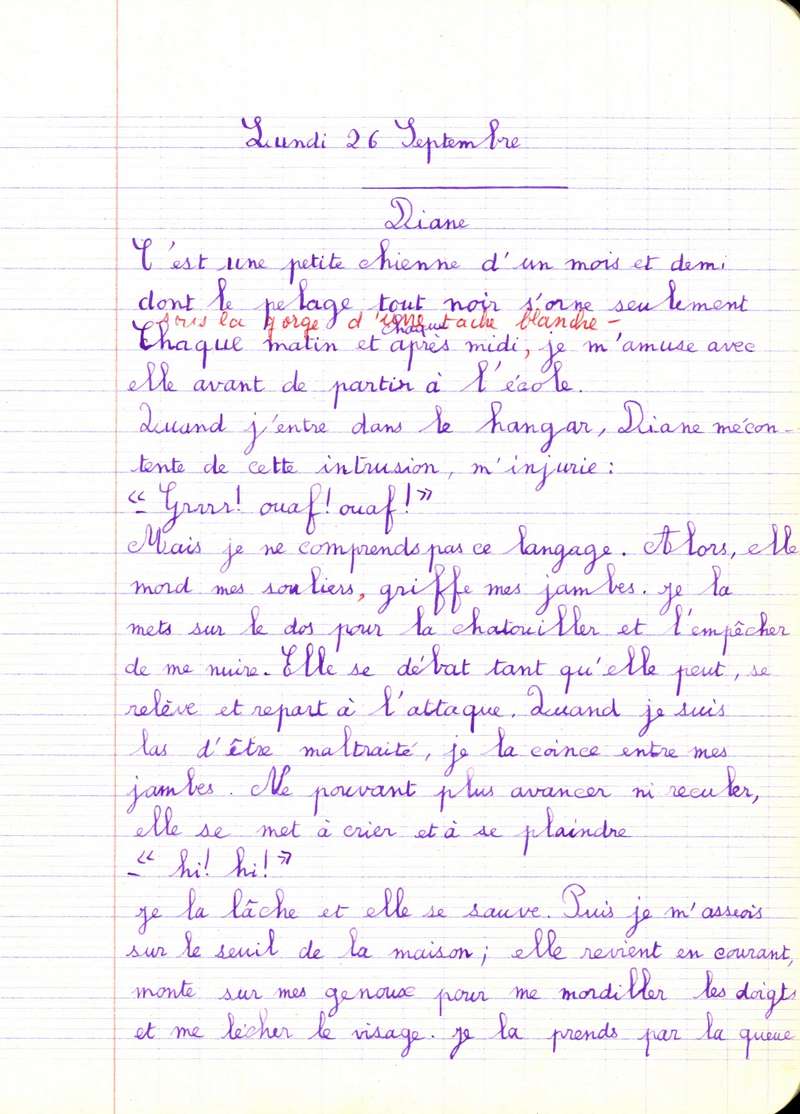 Lundi 26 Septembre
Diane
C'est une petite chienne d'un mois et demi
dont le pelage tout noir s'orne seulement
sous la gorge d'une tache blanche -
Chaque matin et après midi, je m'amuse avec
elle avant de partir à l'école.
Quand j'entre dans le hangar, Diane mécon-
tente de cette intrusion, m'injurie :
- « Grrrr! ouaf! ouaf! »
Mais je ne comprends pas ce langage. Alors, elle
mord mes souliers, griffe mes jambes. Je la
mets sur le dos pour la chatouiller et l'empêcher
de me nuire. Elle se débat tant qu'elle peut, se
relève et repart à l'attaque. Quand je suis
las d'être maltraité, je la coince entre mes
jambes. Ne pouvant plus avancer ni reculer,
elle se met à crier et à se plaindre
- « hi! hi! »
Je la lâche et elle se sauve. Puis je m'asseois
sur le seuil de la maison ; elle revient en courant,
monte sur mes genoux pour me mordiller les doigts
et me lécher le visage. Je la prends par la queue